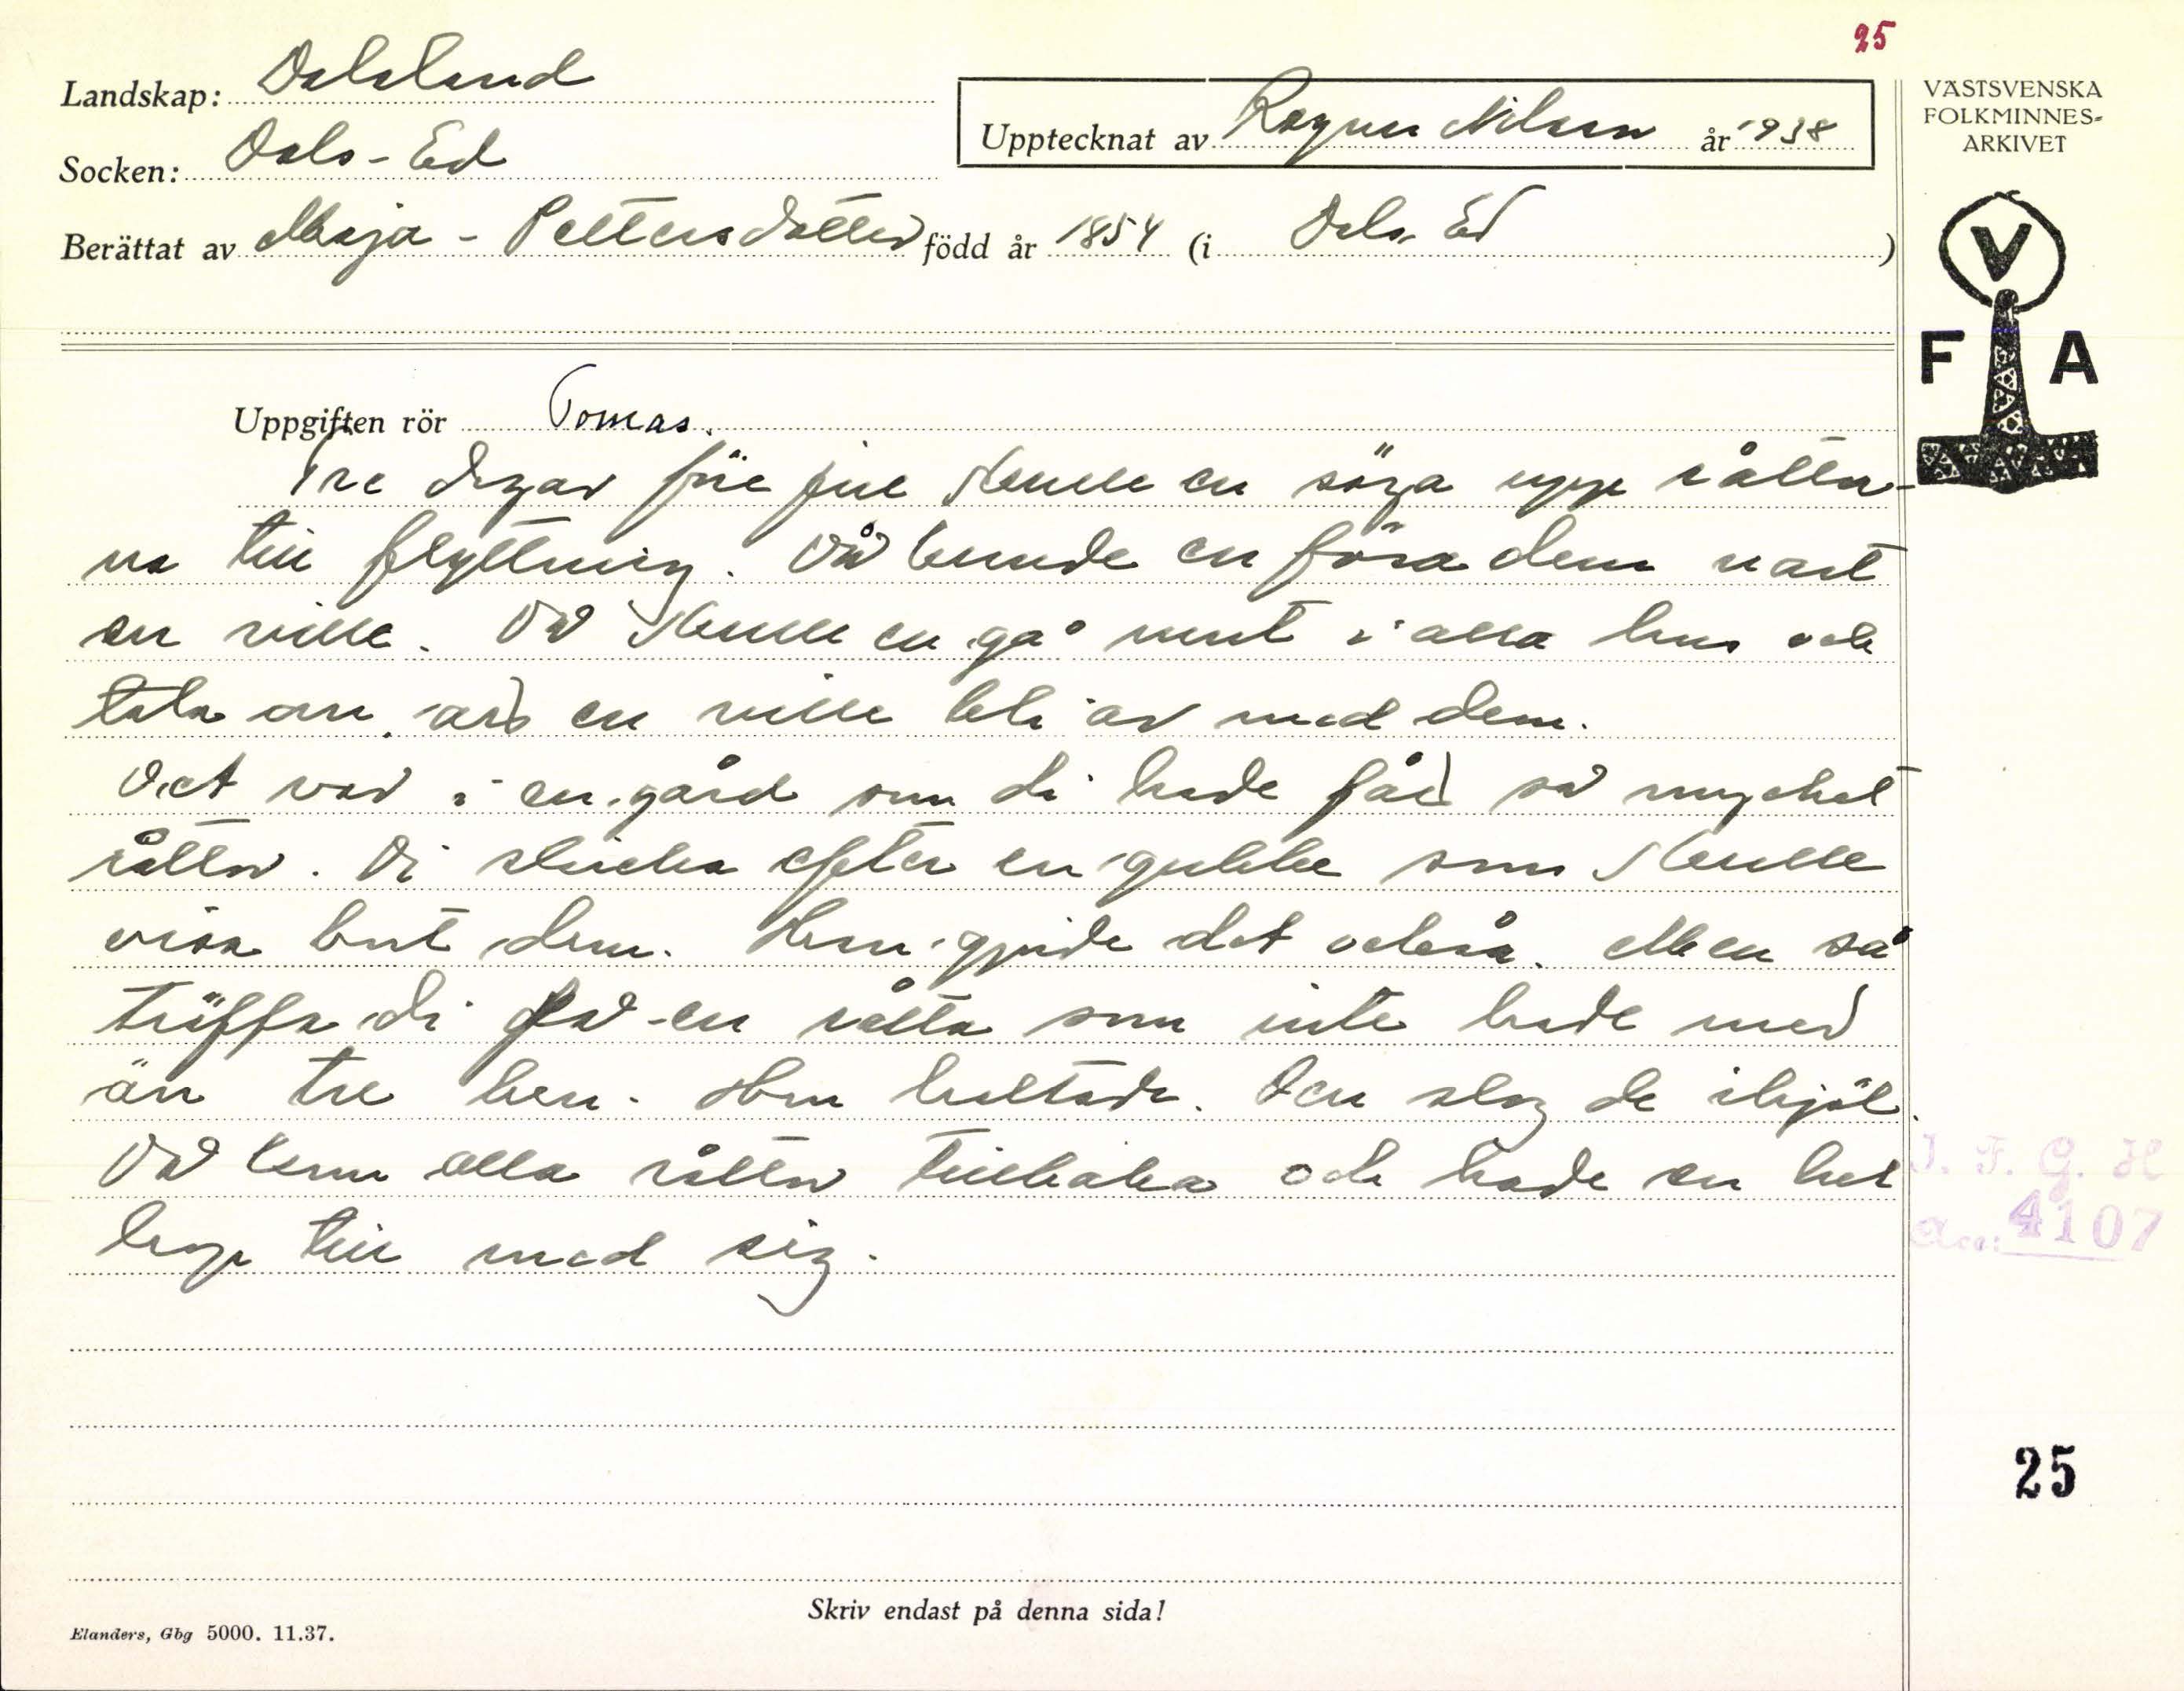 25
Landskap: Dalsland
Upptecknat av Ragnar Nilsson år 1938
Socken: Dals-Ed
Berättat av Maja - Pettersdotter född år 1854 (i Dals-Ed)
VÄSTSVENSKA
FOLKMINNES-
ARKIVET
V
F A
Uppgiften rör Tomas.
Tre dagar före jul skulle en säga upp råttor-
na till flyttning. Då kunde en föra dem vart
en ville. Då skulle en gå runt i alla hus och
tala om, att en ville bli av med dem.
Det var i en gård som di hade fåd så mycket
råttor. Di skicka efter en gubbe som skulle
visa bort dem. Han gjorde det också. Men så
träffa di på en råtta som inte hade mer
än tre ben. Hon haltade. Den slog de ihjäl.
Då kom alla råttor tillbaka och hade en hel
hop till med sig.
I. F. G. H
Acc: 4107
25
Skriv endast på denna sida!
Elanders, Gbg 5000. 11.37.